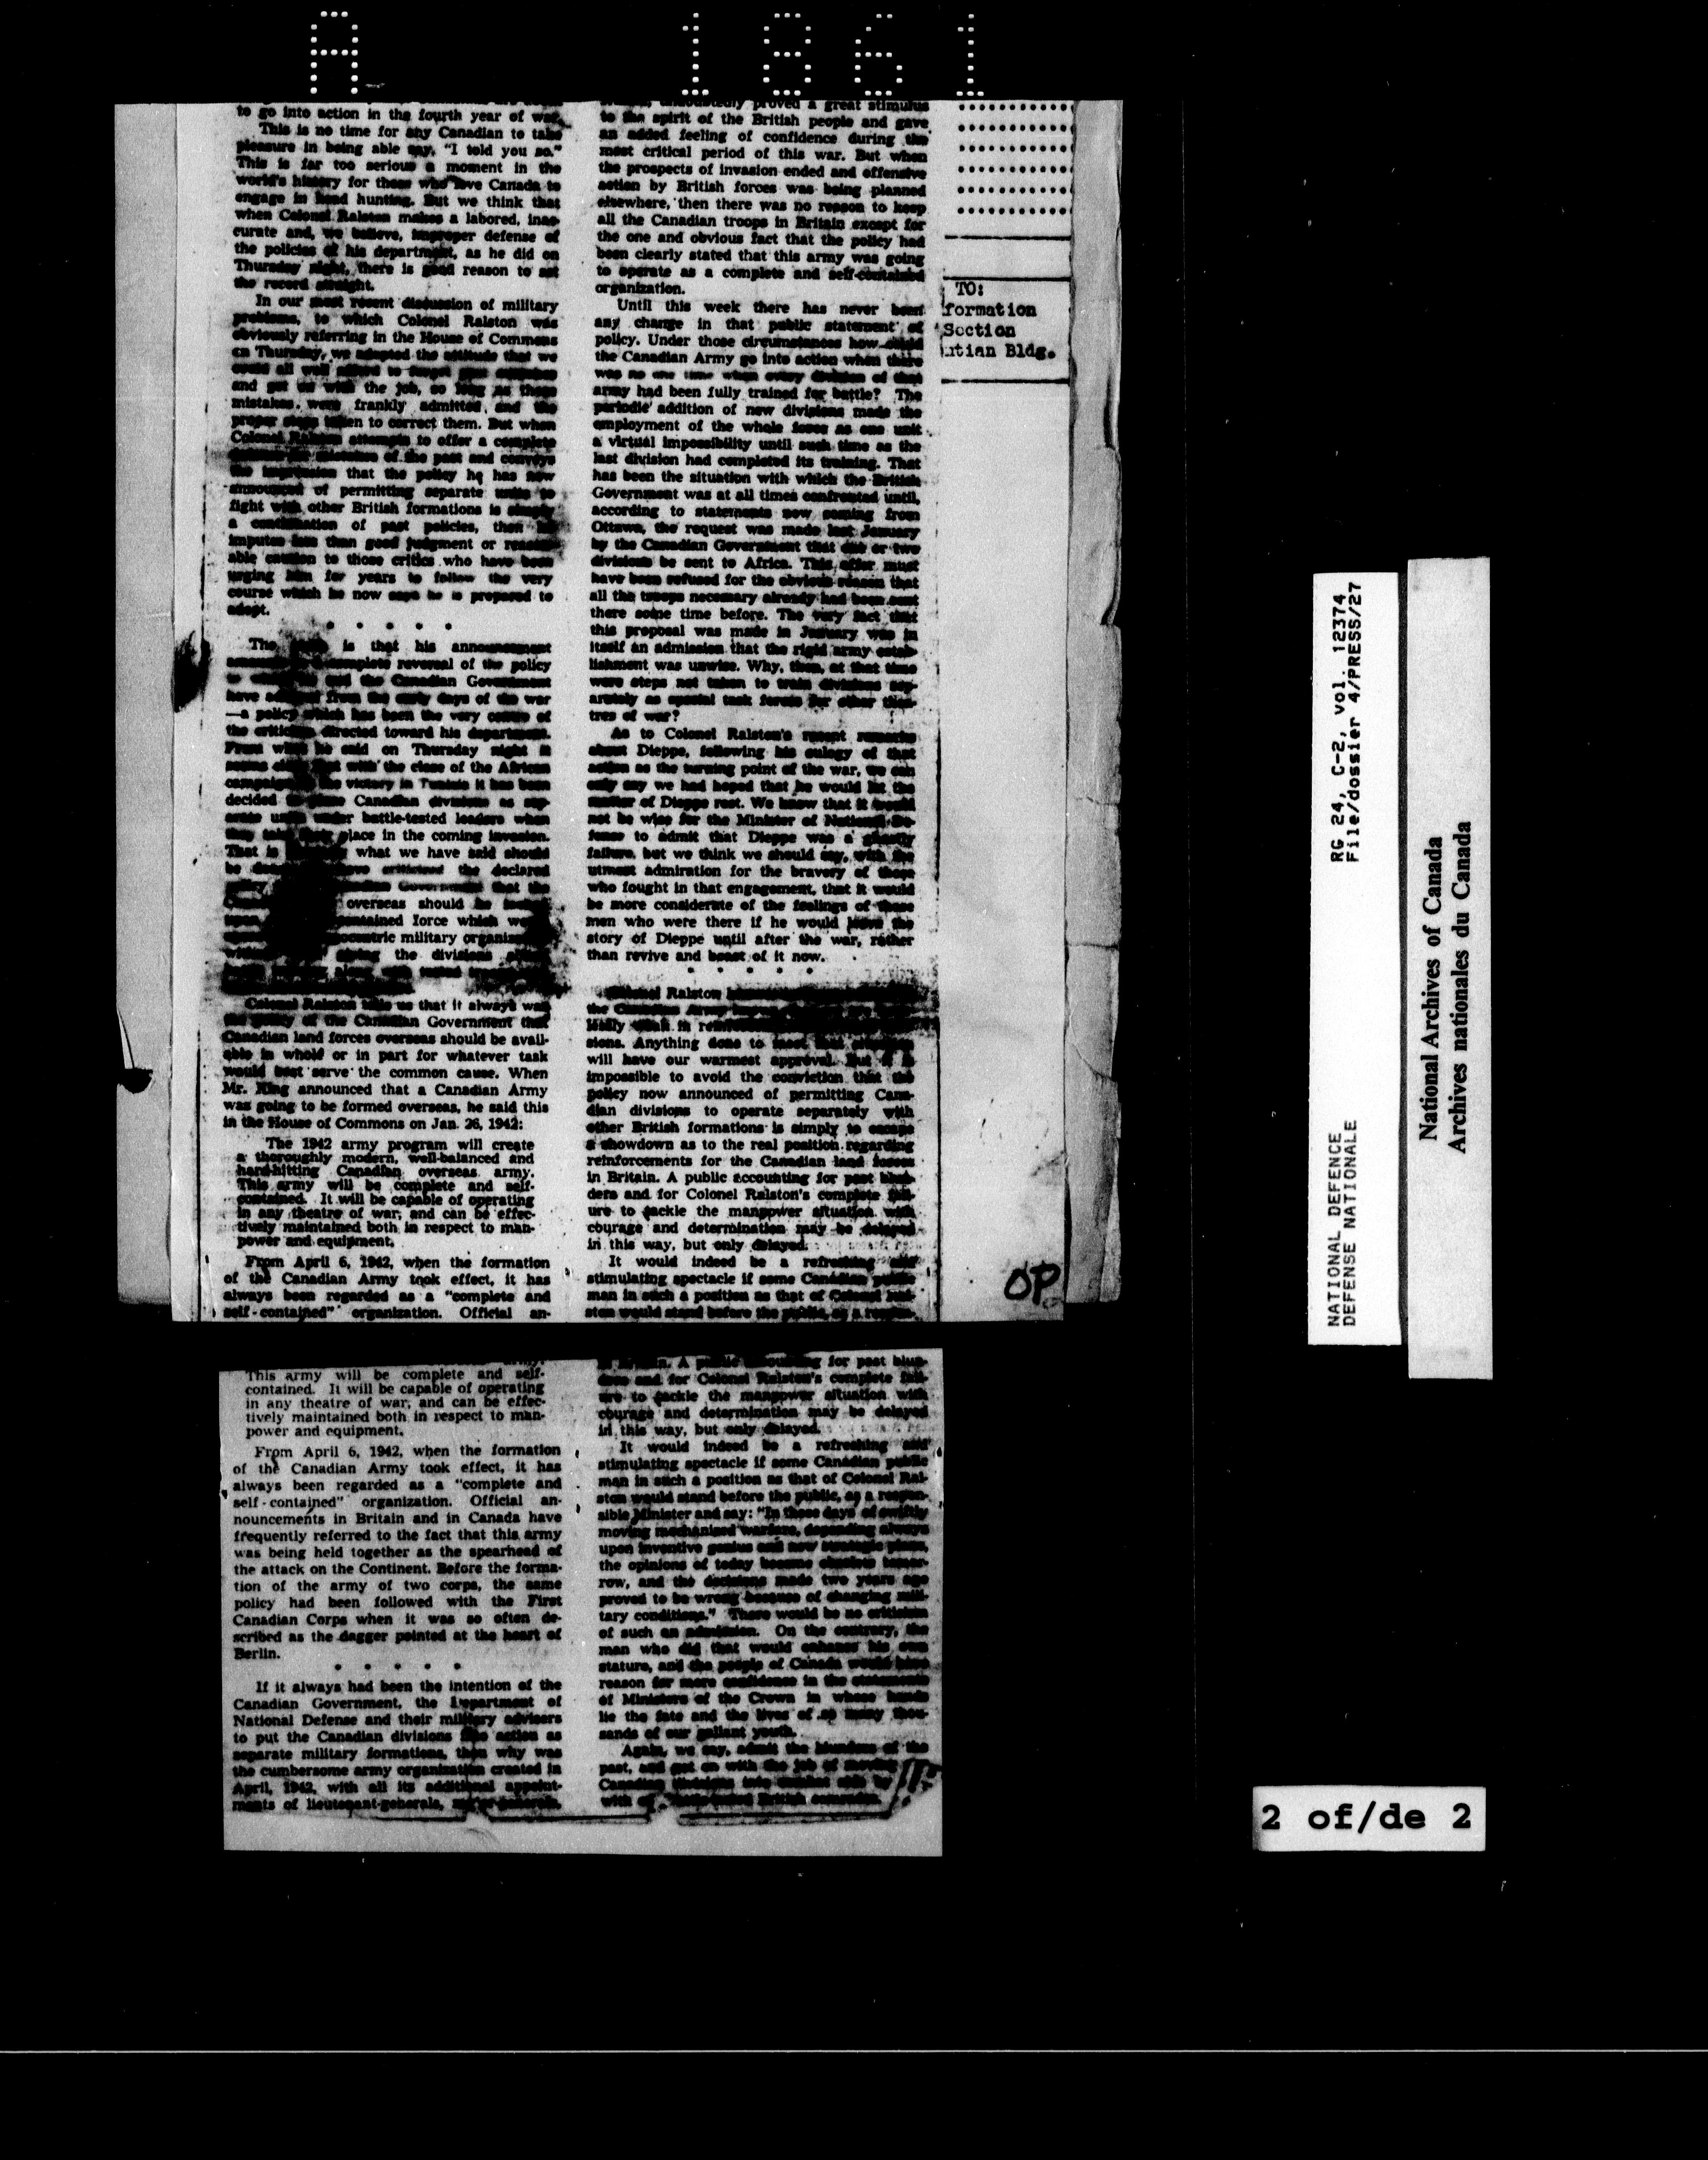 A 1861
to go into action in the fourth year of war.
This is no time for any Canadian to take
pleasure in being able say, "I told you so."
This is far too serious a moment in the
world's history for those who love Canada to
engage in head hunting. But we think that
when Colonel Ralston makes a labored, inac-
curate and, we believe, improper defense of
the policies of his department, as he did on
Thursday night, there is good reason to set
the record straight.
In our most recent discussion of military
problems, to which Colonel Ralston was
obviously referring in the House of Commons
on Thursday, we adopted the attitude that we
could all well afford to forget past mistakes
and get on with the job, so long as those
mistakes were frankly admitted and the
proper steps taken to correct them. But when
Colonel Ralston attempts to offer a complete
of the past and conveys
the impression that the policy he has now
announced of permitting separate units to
fight with other British formations is simply
a continuation of past policies, then he
imputes less than good judgment or reason-
able caution to those critics who have been
urging him for years to follow the very
course which he now says he is prepared to
adopt.
* * * * *
The is that his announcement
complete reversal of the policy
the Canadian Government
have from the early days of the war
—a policy which has been the very centre of
the criticism directed toward his department.
From what he said on Thursday night it
seems that with the close of the African
campaign victory in Tunisia it has been
decided to place Canadian divisions as sep-
arate units under battle-tested leaders when
they take their place in the coming invasion.
That is what we have said should
be done. criticized the declared
Canadian Government that the
overseas should be
contained force which
military
the divisions
Colonel Ralston tells us that it always was
the policy of the Canadian Government that
Canadian land forces overseas should be avail-
able in whole or in part for whatever task
would best serve the common cause. When
Mr. King announced that a Canadian Army
was going to be formed overseas, he said this
in the House of Commons on Jan. 26, 1942:
The 1942 army program will create
a thoroughly modern, well-balanced and
hard-hitting Canadian overseas army.
This army will be complete and self-
contained. It will be capable of operating
in any theatre of war, and can be effec-
tively maintained both in respect to man-
power and equipment.
From April 6, 1942, when the formation
of the Canadian Army took effect, it has
always been regarded as a "complete and
self-contained" organization. Official an-
undoubtedly proved a great stimulus
to the spirit of the British people and gave
an added feeling of confidence during the
most critical period of this war. But when
the prospects of invasion ended and offensive
action by British forces was being planned
elsewhere, then there was no reason to keep
all the Canadian troops in Britain except for
the one and obvious fact that the policy had
been clearly stated that this army was going
to operate as a complete and self-contained
organization.
Until this week there has never been
any change in that public statement of
policy. Under those circumstances how could
the Canadian Army go into action when there
was no one time when every division of that
army had been fully trained for battle? The
periodic addition of new divisions made the
employment of the whole force as one unit
a virtual impossibility until such time as the
last division had completed its training. That
has been the situation with which the British
Government was at all times confronted until,
according to statements now coming from
Ottawa, the request was made last January
by the Canadian Government that one or two
divisions be sent to Africa. This offer must
have been refused for the obvious reason that
all the troops necessary already had been sent
there some time before. The very fact that
this proposal was made in January was in
itself an admission that the rigid army estab-
lishment was unwise. Why, then, at that time
were steps not taken to train divisions sep-
arately as special task forces for other thea-
tres of war?
As to Colonel Ralston's recent remarks
about Dieppe, following his eulogy of that
action as the turning point of the war, we can
only say we had hoped that he would let the
matter of Dieppe rest. We know that it would
not be wise for the Minister of National De-
fense to admit that Dieppe was a ghastly
failure, but we think we should say, with the
utmost admiration for the bravery of those
who fought in that engagement, that it would
be more considerate of the feelings of those
men who were there if he would leave the
story of Dieppe until after the war, rather
than revive and boast of it now.
* * * * *
Colonel Ralston
the Canadian Army
sions. Anything done to meet that
will have our warmest approval. But it is
impossible to avoid the conviction that the
policy now announced of permitting Cana-
dian divisions to operate separately with
other British formations is simply to escape
a showdown as to the real position regarding
reinforcements for the Canadian land forces
in Britain. A public accounting for past blun-
ders and for Colonel Ralston's complete fail-
ure to tackle the manpower situation with
courage and determination may be delayed
in this way, but only delayed.
It would indeed be a refreshing and
stimulating spectacle if some Canadian public
man in such a position as that of Colonel Ral-
ston would stand before the public, as a respon-
TO:
formation
Section
utian Bldg.
OP
This army will be complete and self-
contained. It will be capable of operating
in any theatre of war, and can be effec-
tively maintained both in respect to man-
power and equipment.
From April 6, 1942, when the formation
of the Canadian Army took effect, it has
always been regarded as a "complete and
self-contained" organization. Official an-
nouncements in Britain and in Canada have
frequently referred to the fact that this army
was being held together as the spearhead of
the attack on the Continent. Before the forma-
tion of the army of two corps, the same
policy had been followed with the First
Canadian Corps when it was so often de-
scribed as the dagger pointed at the heart of
Berlin.
* * * * *
If it always had been the intention of the
Canadian Government, the Department of
National Defense and their military advisers
to put the Canadian divisions into action as
separate military formations, then why was
the cumbersome army organization created in
April, 1942, with all its additional appoint-
ments of lieutenant-generals, major-generals,
in Britain. A public accounting for past blun-
ders and for Colonel Ralston's complete fail-
ure to tackle the manpower situation with
courage and determination may be delayed
in this way, but only delayed.
It would indeed be a refreshing and
stimulating spectacle if some Canadian public
man in such a position as that of Colonel Ral-
ston would stand before the public, as a respon-
sible Minister and say: "In these days of swiftly
moving mechanized warfare, depending always
upon inventive genius and new strategic plans,
the opinions of today become obsolete tomor-
row, and the decisions made two years ago
proved to be wrong because of changing mili-
tary conditions." There would be no criticism
of such an admission. On the contrary, the
man who did that would enhance his own
stature, and the people of Canada would have
reason for more confidence in the statements
of Ministers of the Crown in whose hands
lie the fate and the lives of so many thou-
sands of our gallant youth.
Again, we say, admit the blunders of the
past, and get on with the job of
Canadian divisions into action side by
with British
RG 24, C-2, vol. 12374
File/dossier 4/PRESS/27
NATIONAL DEFENCE
DEFENSE NATIONALE
National Archives of Canada
Archives nationales du Canada
2 of/de 2